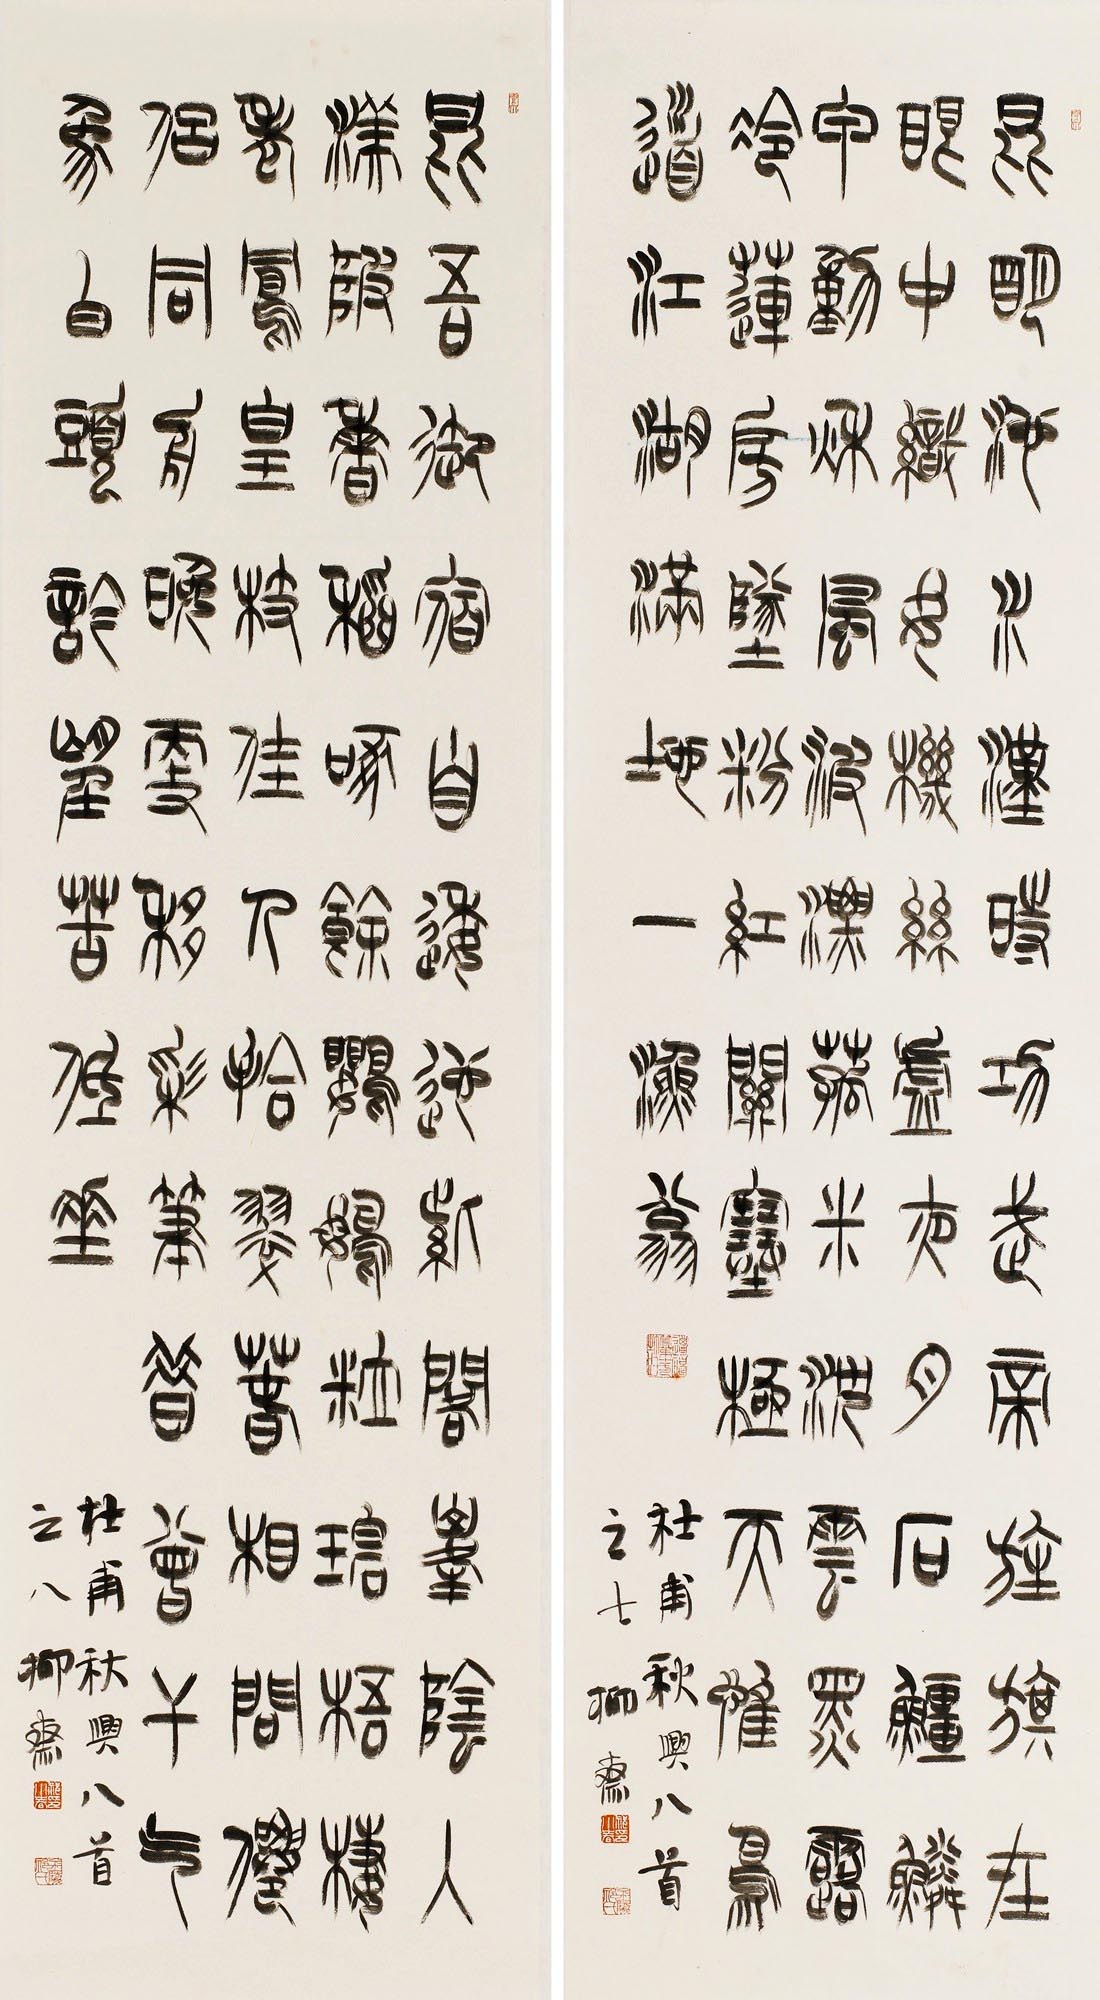 昆明池水漢時功武帝旌旗在
眼中織女機絲虛夜月石鯨鱗
甲動秋風波漂菰米沈雲黑露
冷蓮房墜粉紅關塞極天惟鳥
道江湖滿地一漁翁
杜甫秋興八首
之七 柳齋
昆吾御宿自逶迤紫閣峯陰入
渼陂香稻啄餘鸚鵡粒碧梧棲
老鳳皇枝佳人拾翠春相問僊
侶同舟晚更移彩筆昔曾干气
象白頭吟望苦低垂
杜甫秋興八首
之八 柳齋